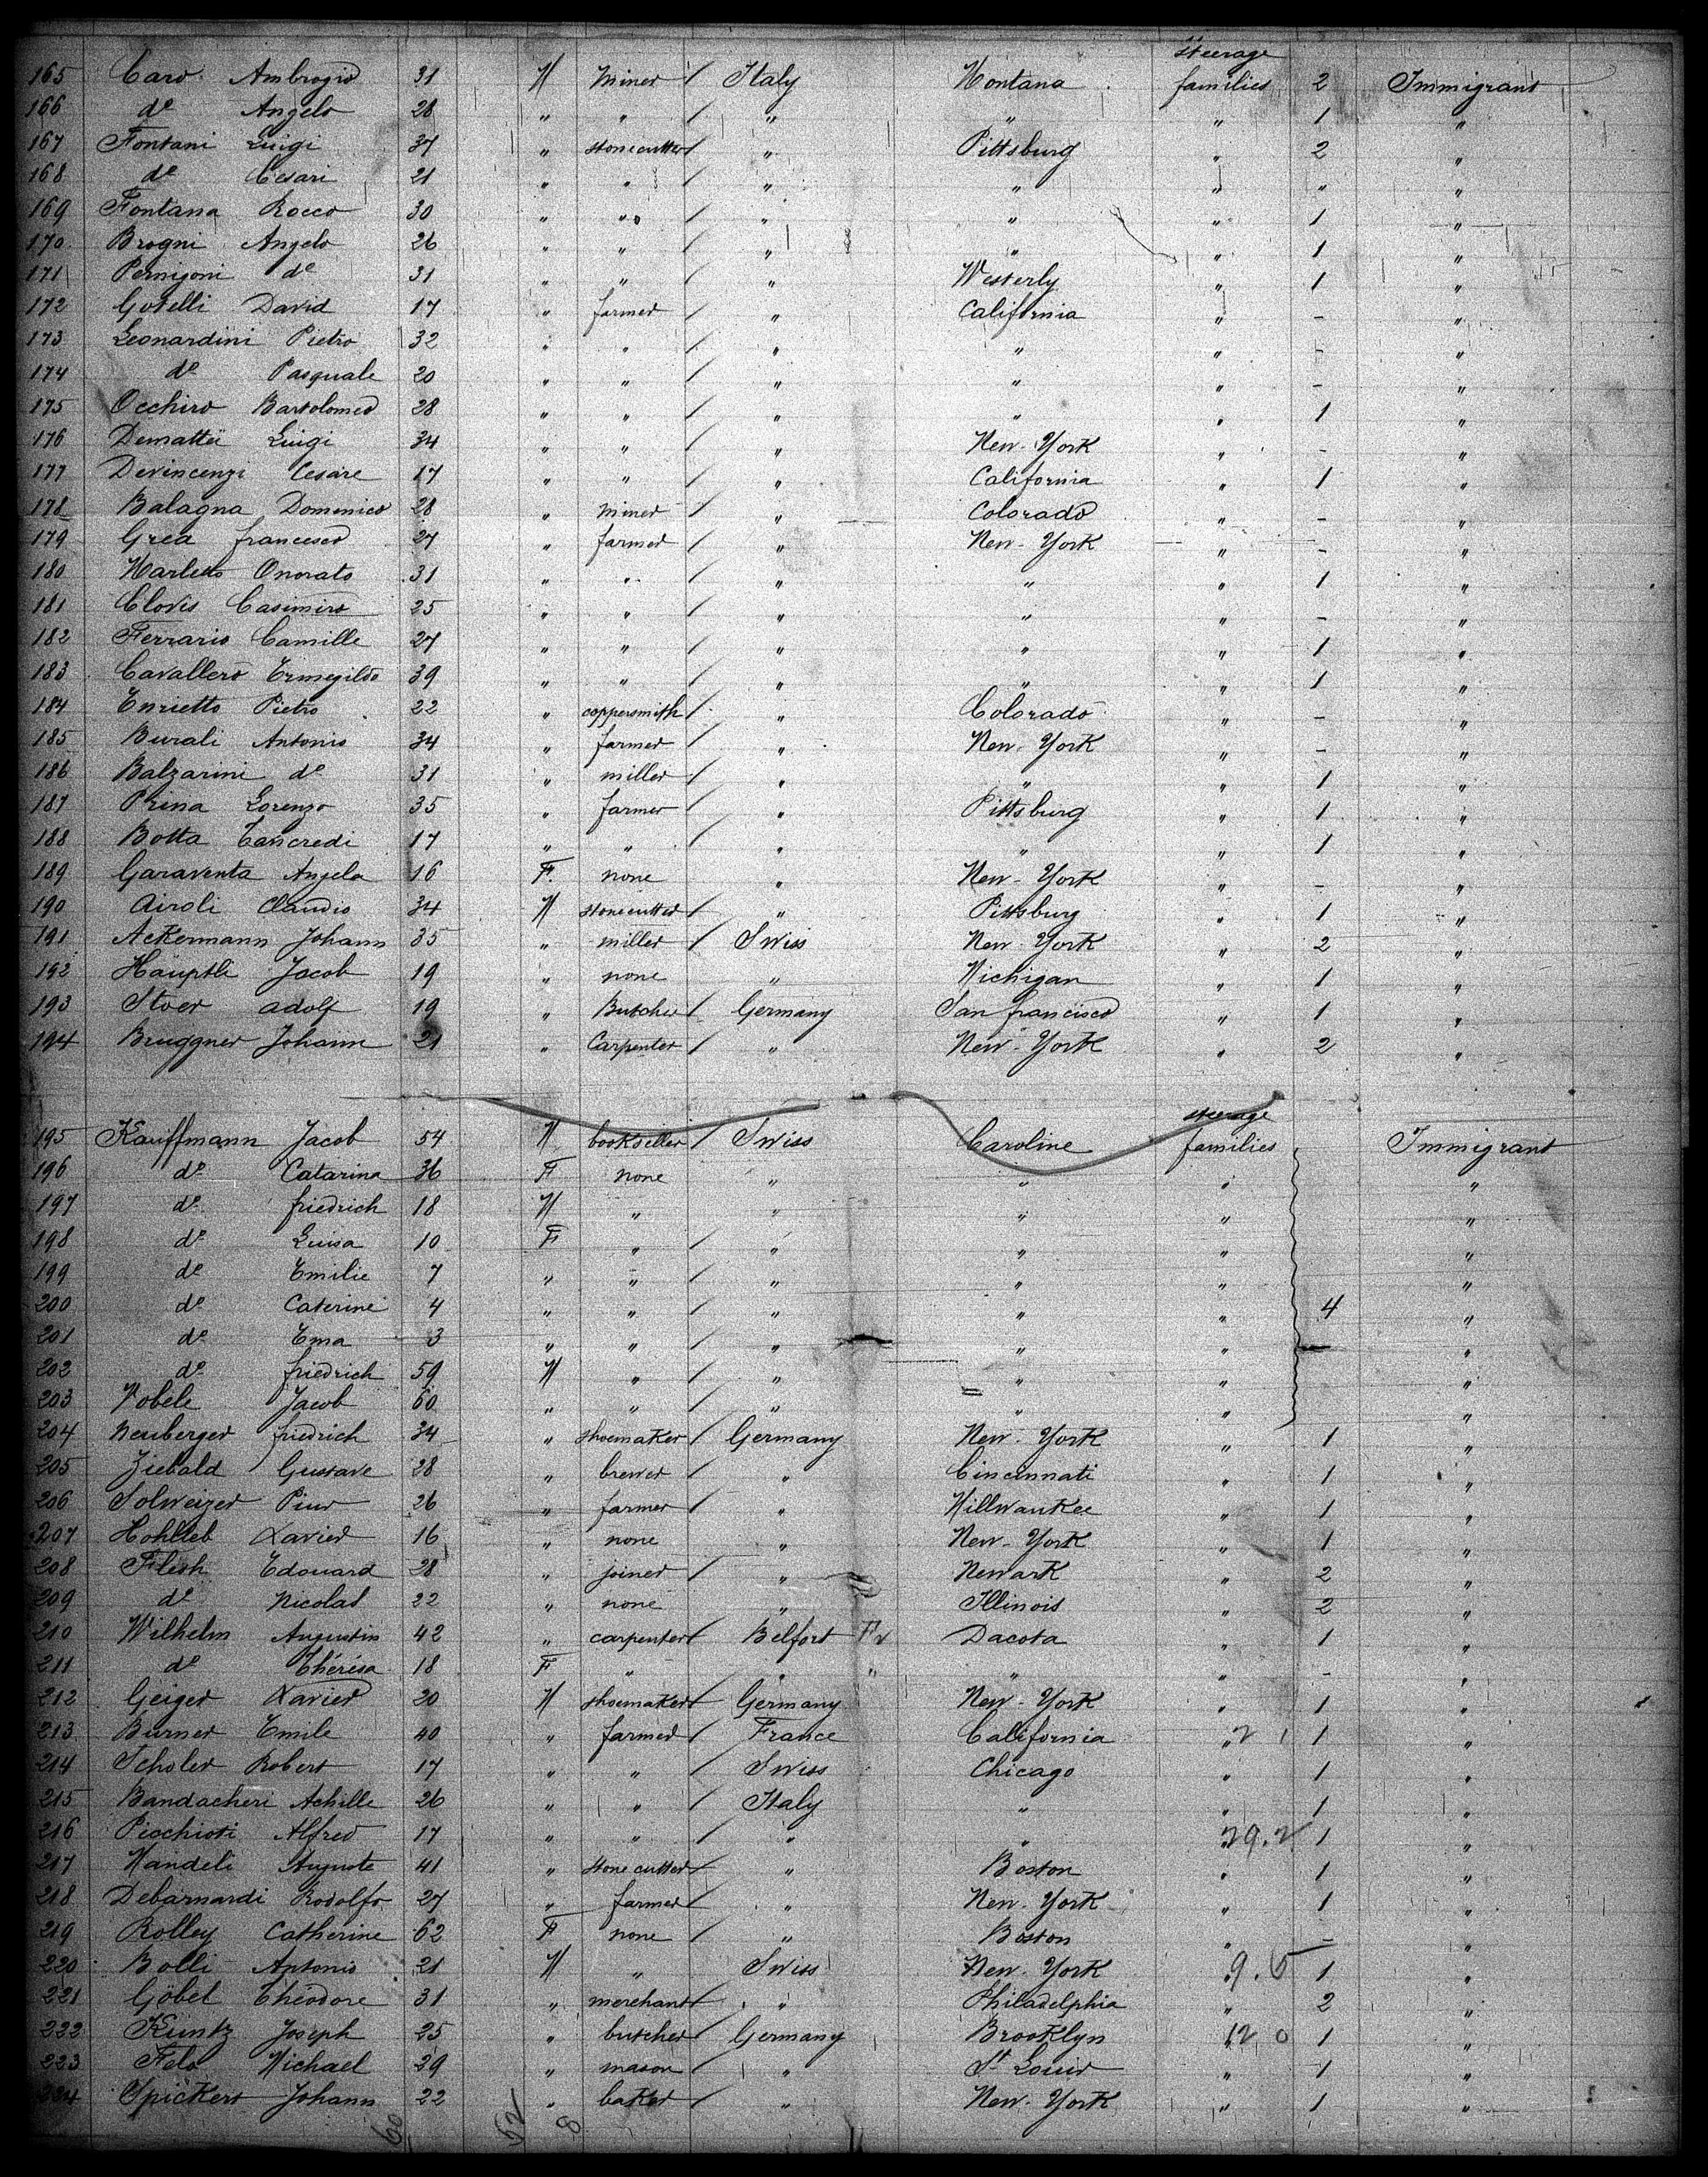 steerage
165 Caro Ambrogio 31 M miner / Italy Montana families 2 Immigrant
166 do Angelo 28 " " / " " " 1 "
167 Fontani Luigi 37 " stonecutter / " Pittsburg " 2 "
168 do Cesari 21 " " / " " " " "
169 Fontana Rocco 30 " " / " " " 1 "
170 Brogni Angelo 26 " " / " " " 1 "
171 Pernigoni do 31 " " / " Westerly " 1 "
172 Gotelli David 17 " farmer / " California " - "
173 Leonardini Pietro 32 " " / " " " - "
174 do Pasquale 20 " " / " " " - "
175 Occhiro Bartolomeo 28 " " / " " " 1 "
176 Demattëi Luigi 34 " " / " New-York " - "
177 Devincenzi Cesare 17 " " / " California " 1 "
178 Balagna Domenico 28 " miner / " Colorado " - "
179 Grea francesco 27 " farmer / " New-York " - "
180 Marletto Onorato 31 " " / " " " 1 "
181 Clovis Casimiro 25 " " / " " " - "
182 Ferraris Camille 27 " " / " " " 1 "
183 Cavallero Ermegildo 39 " " / " " " 1 "
184 Enrietto Pietro 22 " coppersmith / " Colorado " - "
185 Burali Antonio 34 " farmer / " New-York " - "
186 Balzarini do 31 " miller / " " " 1 "
187 Prina Lorenzo 35 " farmer / " Pittsburg " 1 "
188 Botta Tancredi 17 " " / " " " 1 "
189 Garaventa Angela 16 F. none " New-York " - "
190 Airoli Claudio 34 M stonecutter / " Pittsburg " 1 "
191 Ackermann Johann 35 " miller / Swiss New-York " 2 "
192 Häuptli Jacob 19 " none " Michigan " 1 "
193 Stoer adolf 19 " Butcher / Germany San francisco " 1 "
194 Bruggner Johann 21 " Carpenter / " New-York " 2 "
steerage
195 Kauffmann Jacob 54 M bookseller / Swiss Caroline families Immigrant
196 do Catarina 36 F none " " " "
197 do friedrich 18 M " " " " "
198 do Luisa 10 F " / " " " "
199 do Emilie 7 " " / " " " "
200 do Caterine 4 " " / " " " 4 "
201 do Ema 3 " " / " " " "
202 do friedrich 59 M " / " " " "
203 Vobele Jacob 60 " " / " " " "
204 Neuberger friedrich 34 " shoemaker / Germany New-York " 1 "
205 Ziebald Gustave 28 " brewer / " Cincinnati " 1 "
206 Solweizer Pius 26 " farmer / " Millwaukee " 1 "
207 Hohlleb Xavier 16 " none " New-York " 1 "
208 Flesh Edouard 28 " joiner / " Newark " 2 "
209 do Nicolas 22 " none " Illinois " 2 "
210 Wilhelm Augustin 42 " carpenter / Belfort Fr Dacota " 1 "
211 do Thérésa 18 F " " " " " - "
212 Geiger Xavier 20 M shoemaker / Germany New-York " 1 "
213 Burner Emile 40 " farmer / France California " 2 1 1 "
214 Scholer Robert 17 " " / Swiss Chicago " 1 "
215 Bandacheri Achille 26 " " / Italy " " 1 "
216 Picchioti Alfred 17 " " / " " " 29.2 1 "
217 Mandeli Auguste 41 " stone cutter / " Boston " 1 "
218 Debarnardi Rodolfo 27 " farmer / " New-York " 1 "
219 Rolley Catherine 62 F none / " Boston " - "
220 Bolli Antonio 21 M " Swiss New-York " 9.5 1 "
221 Göbel Théodore 31 " merchant / " Philadelphia " 2 "
222 Küntz Joseph 25 " butcher / Germany Brooklyn " 12 0 1 "
223 Felo Michael 29 " mason / " St Louis " 1 "
224 Spickert Johann 22 " baker / " New-York " 1 "
60 52 8